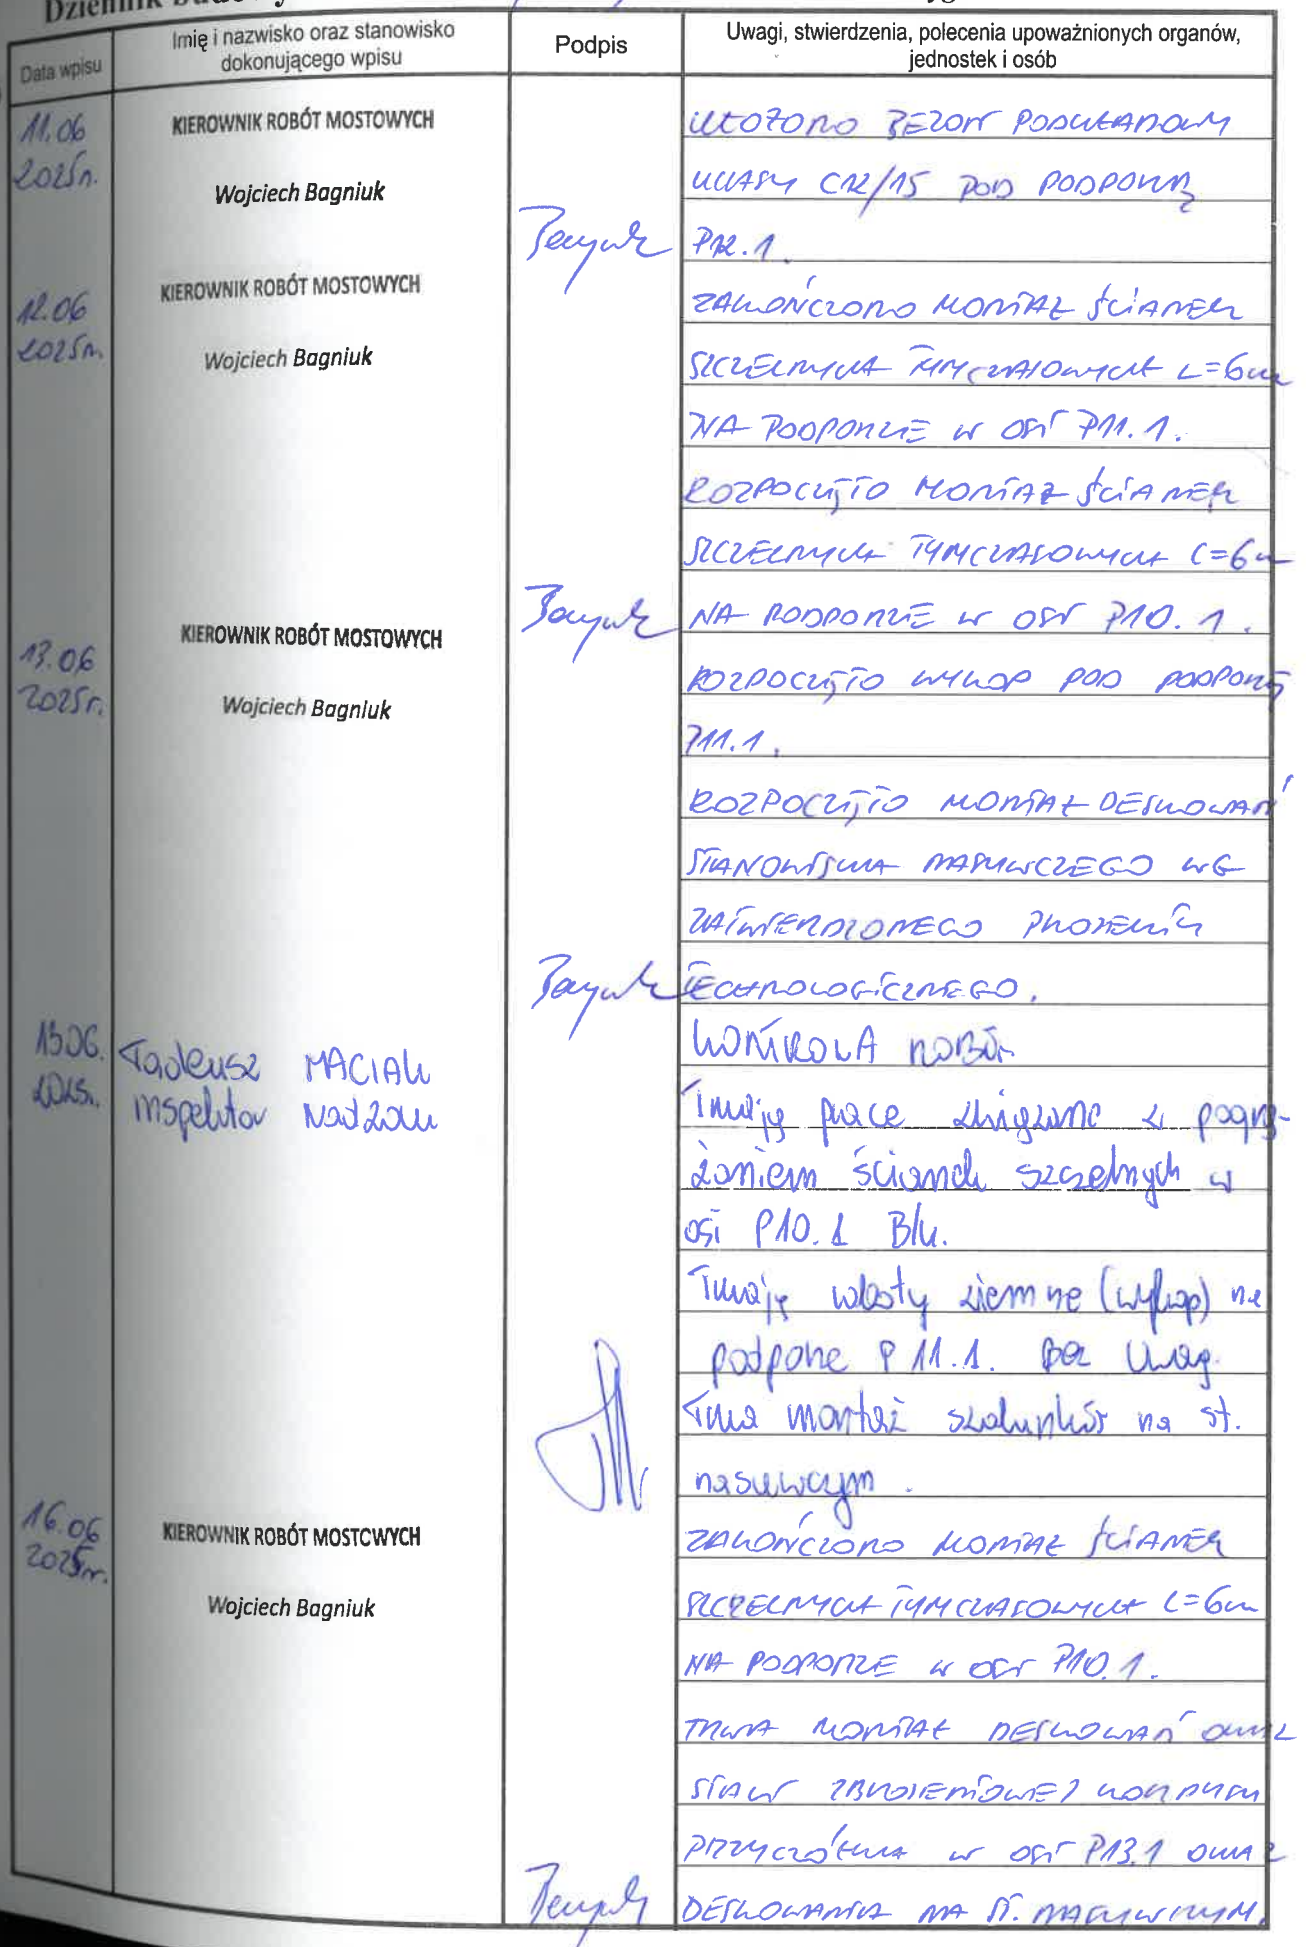 Dziennik budowy
Data wpisu
Imię i nazwisko oraz stanowisko
dokonującego wpisu
Podpis
Uwagi, stwierdzenia, polecenia upoważnionych organów,
jednostek i osób
11.06
2025r.
KIEROWNIK ROBÓT MOSTOWYCH
Wojciech Bagniuk
UŁOŻONO BETON PODKŁADOWY
KLASY C12/15 POD PODPORĄ
P12.1.
12.06
2025r.
KIEROWNIK ROBÓT MOSTOWYCH
Wojciech Bagniuk
ZAKOŃCZONO MONTAŻ ŚCIANEK
SZCZELNYCH TYMCZASOWYCH L=6m
NA PODPORZE W OSI P11.1.
ROZPOCZĘTO MONTAŻ ŚCIANEK
SZCZELNYCH TYMCZASOWYCH L=6m
NA PODPORZE W OSI P10.1.
13.06
2025r.
KIEROWNIK ROBÓT MOSTOWYCH
Wojciech Bagniuk
ROZPOCZĘTO WYKOP POD PODPORĘ
P11.1.
ROZPOCZĘTO MONTAŻ DESKOWAŃ
STANOWISKA NASUWCZEGO WG
ZATWIERDZONEGO PROJEKTU
TECHNOLOGICZNEGO.
13.06.
2025r.
Tadeusz MACIAK
inspektor Nadzoru
KONTROLA ROBÓT
Trwają prace związane z pogrą-
żaniem ścianek szczelnych w
osi P10.1 B/u.
Trwają roboty ziemne (wykop) na
podporze P 11.1. Bez Uwag.
Trwa montaż szalunków na st.
nasuwczym.
16.06
2025r.
KIEROWNIK ROBÓT MOSTOWYCH
Wojciech Bagniuk
ZAKOŃCZONO MONTAŻ ŚCIANEK
SZCZELNYCH TYMCZASOWYCH L=6m
NA PODPORZE W OSI P10.1.
TRWA MONTAŻ DESKOWAŃ ORAZ
STALI ZBROJENIOWEJ KORPUSU
PRZYCZÓŁKA W OSI P13.1 ORAZ
DESKOWANIA NA ST. NASUWCZYM.